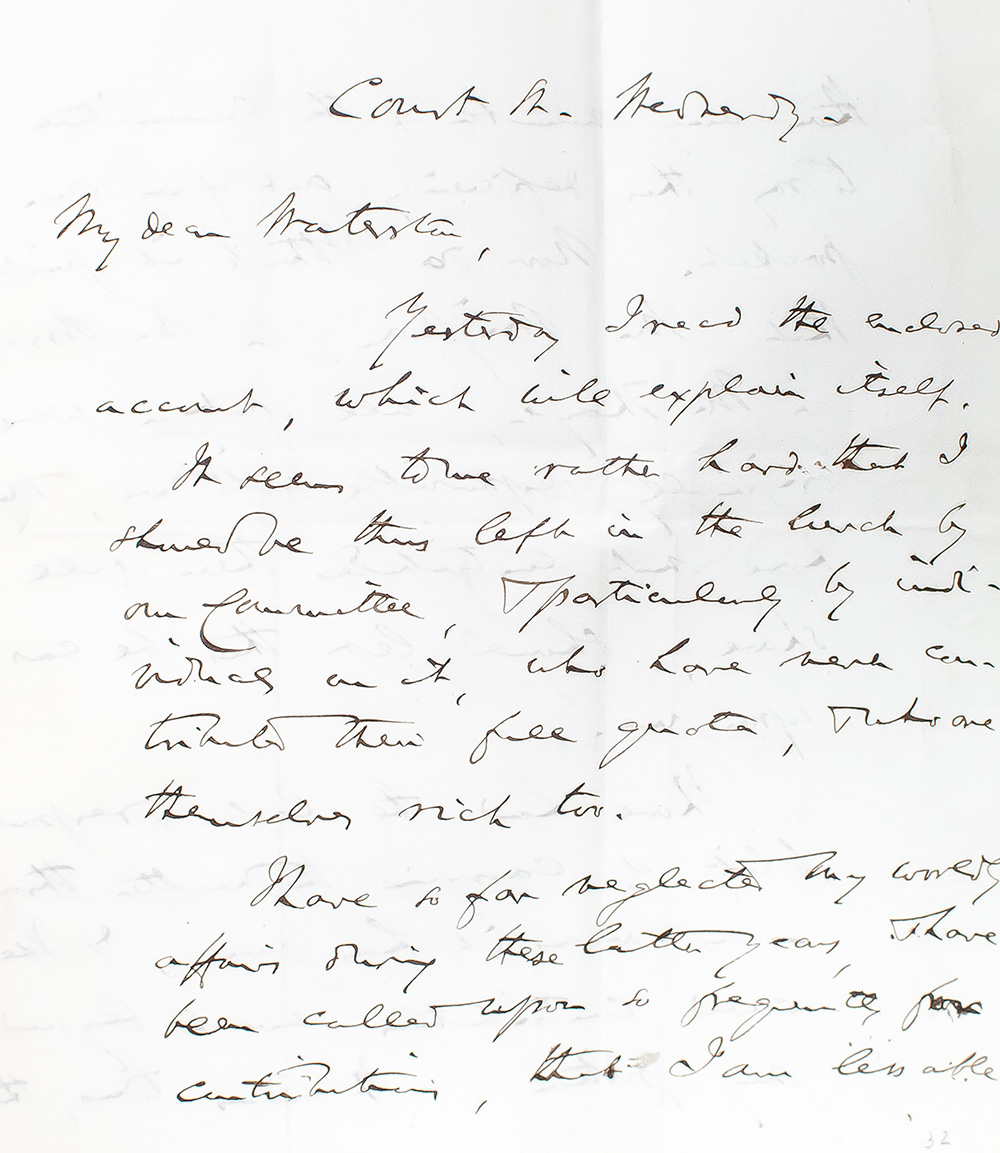 Court St. Wednesday.
My dear Waterston,
Yesterday I read the enclosed
account, which will explain itself.
It seems to me rather hard that I
should be thus left in the lurch by
our Committee, & particularly by indi-
viduals on it, who have never con-
tributed their full quota, & who are
themselves rich too.
I have so far neglected my worldly
affairs during these latter years, & have
been called upon so frequently for
contributions, that I am less able
32